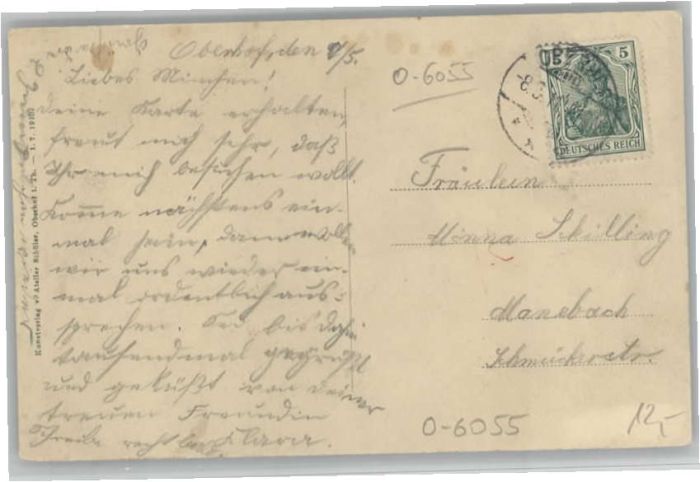 Oberhof, den 8/5.
Liebes Minchen!
deine Karte erhalten,
freut mich sehr, daß
Ihr mich besuchen wollt.
Komme nächstens ein-
mal heim, dann wollen
wir uns wieder ein-
mal ordentlich aus-
sprechen. Sei bis dahin
tausendmal gegrüßt
und geküßt von deiner
treuen Freundin
Schreibe recht Klara.
Kunstverlag v. Atelier Schlüter, Oberhof i. Th. — 1. 7. 1910
O-6055
5
DEUTSCHES REICH
Fräulein
Minna Schilling
Manebach
Schmückerstr.
O-6055
12,-